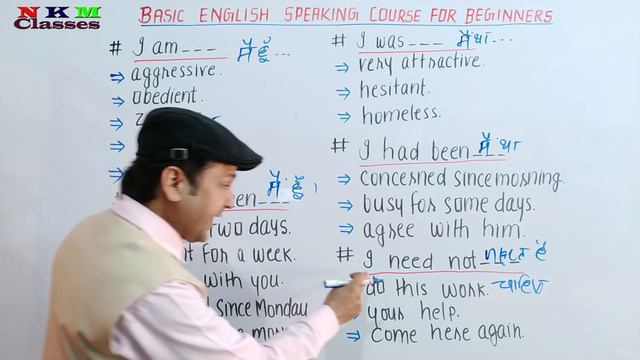 NKM
Classes
BASIC ENGLISH SPEAKING COURSE FOR BEGINNERS
# I am--- मैं हूँ...
⇒ aggressive.
⇒ obedient.
een--- मैं हूँ।
TWO days.
for a week.
with you.
since Monday
# I was--- मैं था...
⇒ very attractive.
⇒ hesitant.
⇒ homeless.
# I had been--- मैं था
⇒ concerned since morning.
⇒ busy for some days.
⇒ agree with him.
# I need not---
do this work. चाहिए
your help.
⇒ come here again.